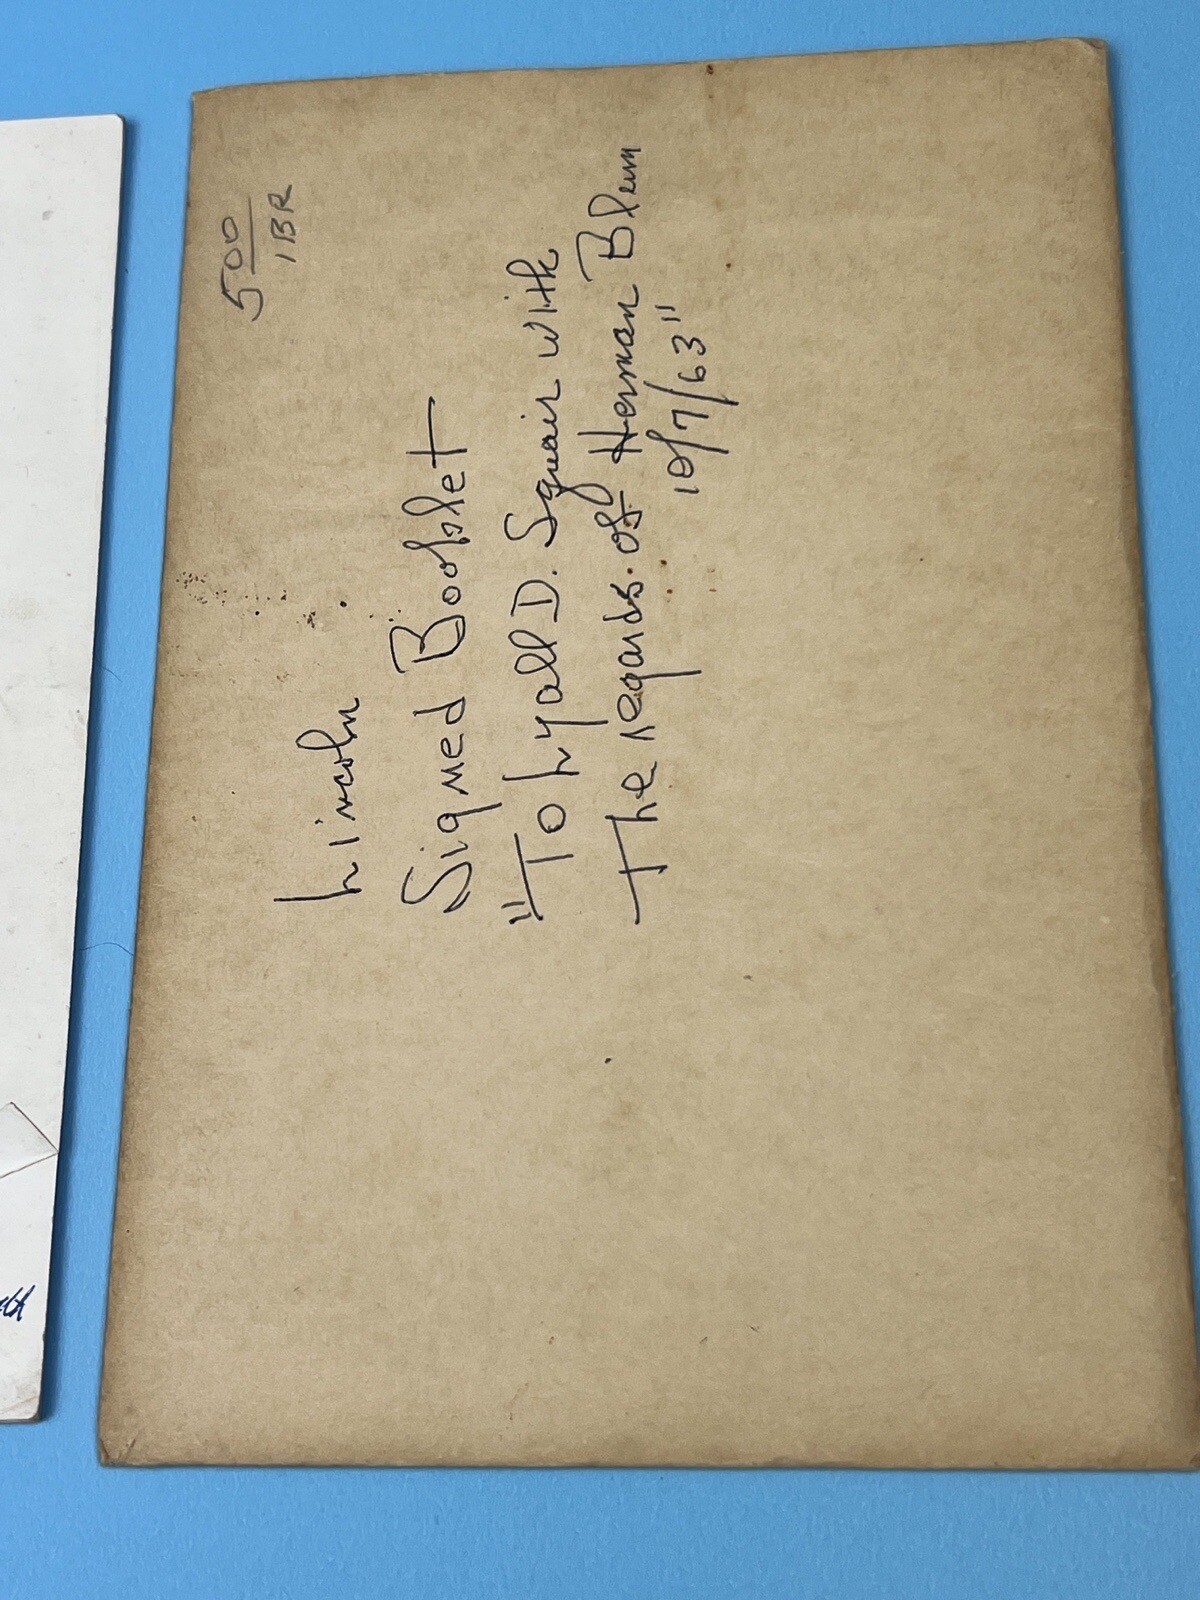 5 00
1BR
Lincoln
Signed Booklet
"To Lyall D. Squair with
The regards of Herman Blum
10/7/63"